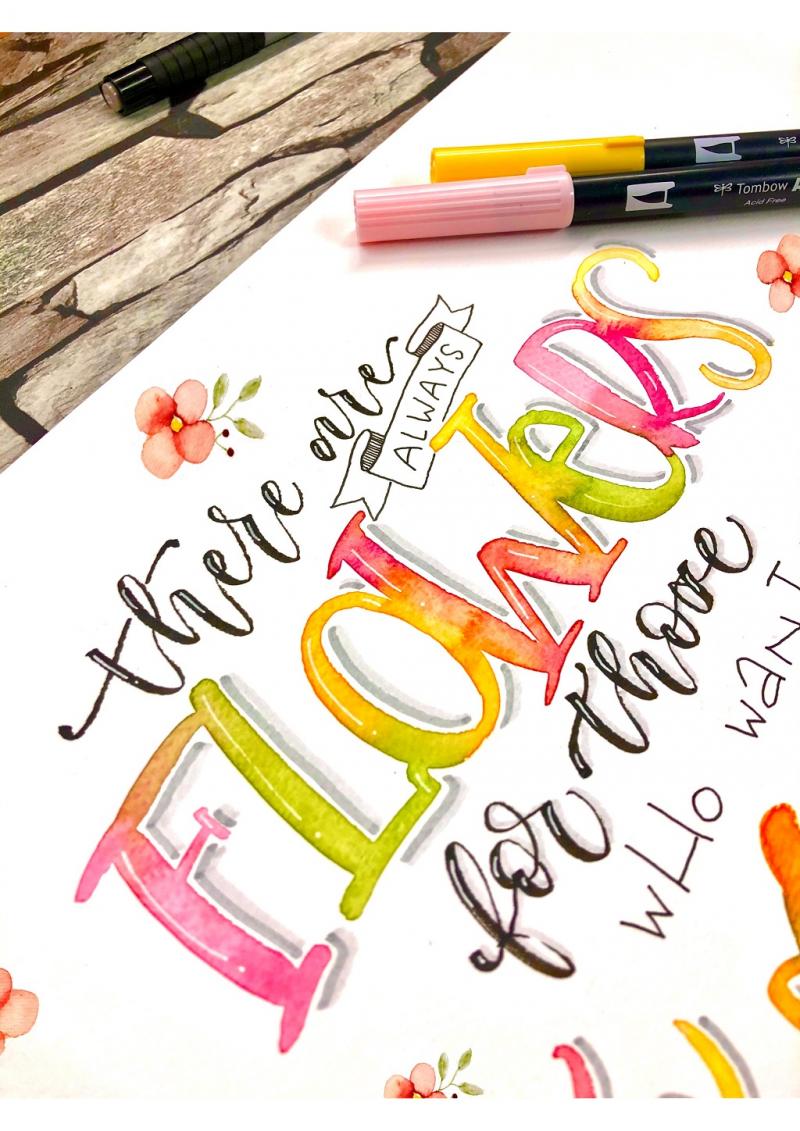 there are ALWAYS
FLOWERS
for those
WHO WANT
Tombow
Acid Free